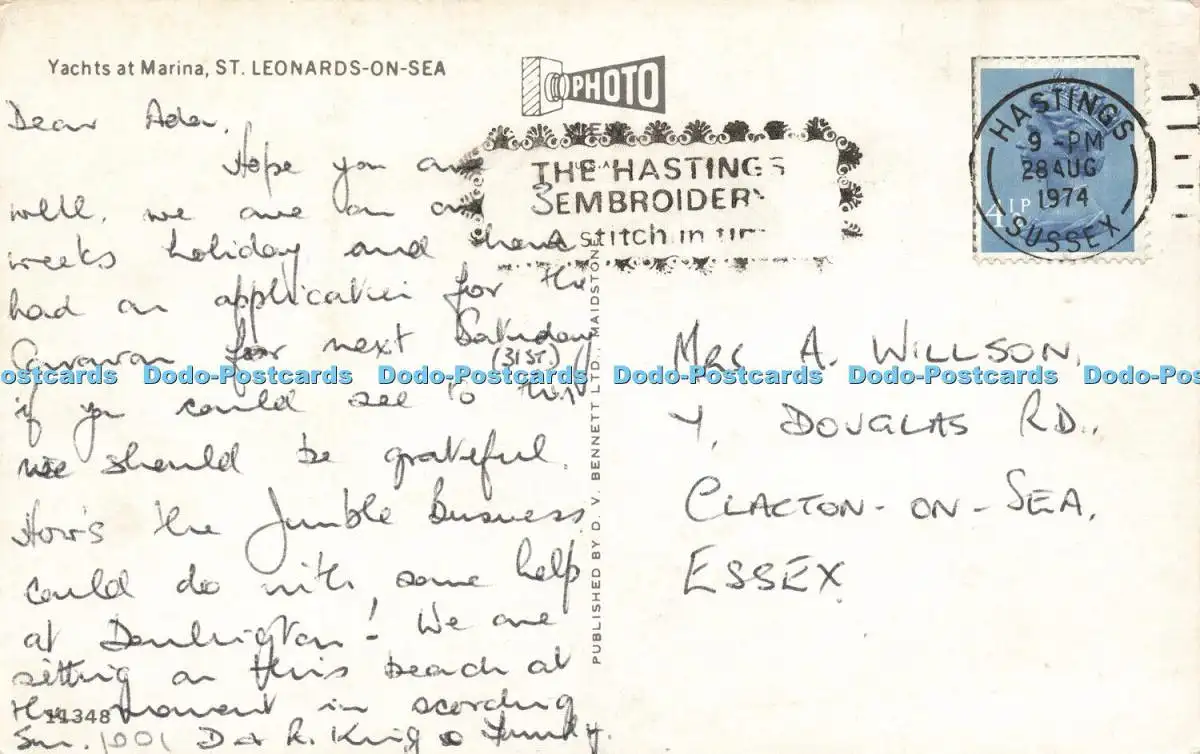 Yachts at Marina, ST. LEONARDS-ON-SEA
PHOTO
THE HASTINGS
EMBROIDERY
A stitch in tim
HASTINGS
9 - PM
28 AUG
1974
SUSSEX
4½P
Dear Ada,
Hope you are
well. we are on our
weeks holiday and have
had an application for the
Caravan for next Saturday
(31ST)
if you could see to this
we should be grateful.
How's the Jumble Business
could do with some help
at ! We are
sitting on this beach at
the moment in scorching
Sun. D & R. King & Family.
11348
PUBLISHED BY D. V. BENNETT LTD., MAIDSTONE
Mrs A. WILLSON,
DOUGLAS RD.,
CLACTON-ON-SEA,
ESSEX
ostcards Dodo-Postcards Dodo-Postcards Dodo-Postcards Dodo-Postcards Dodo-Po